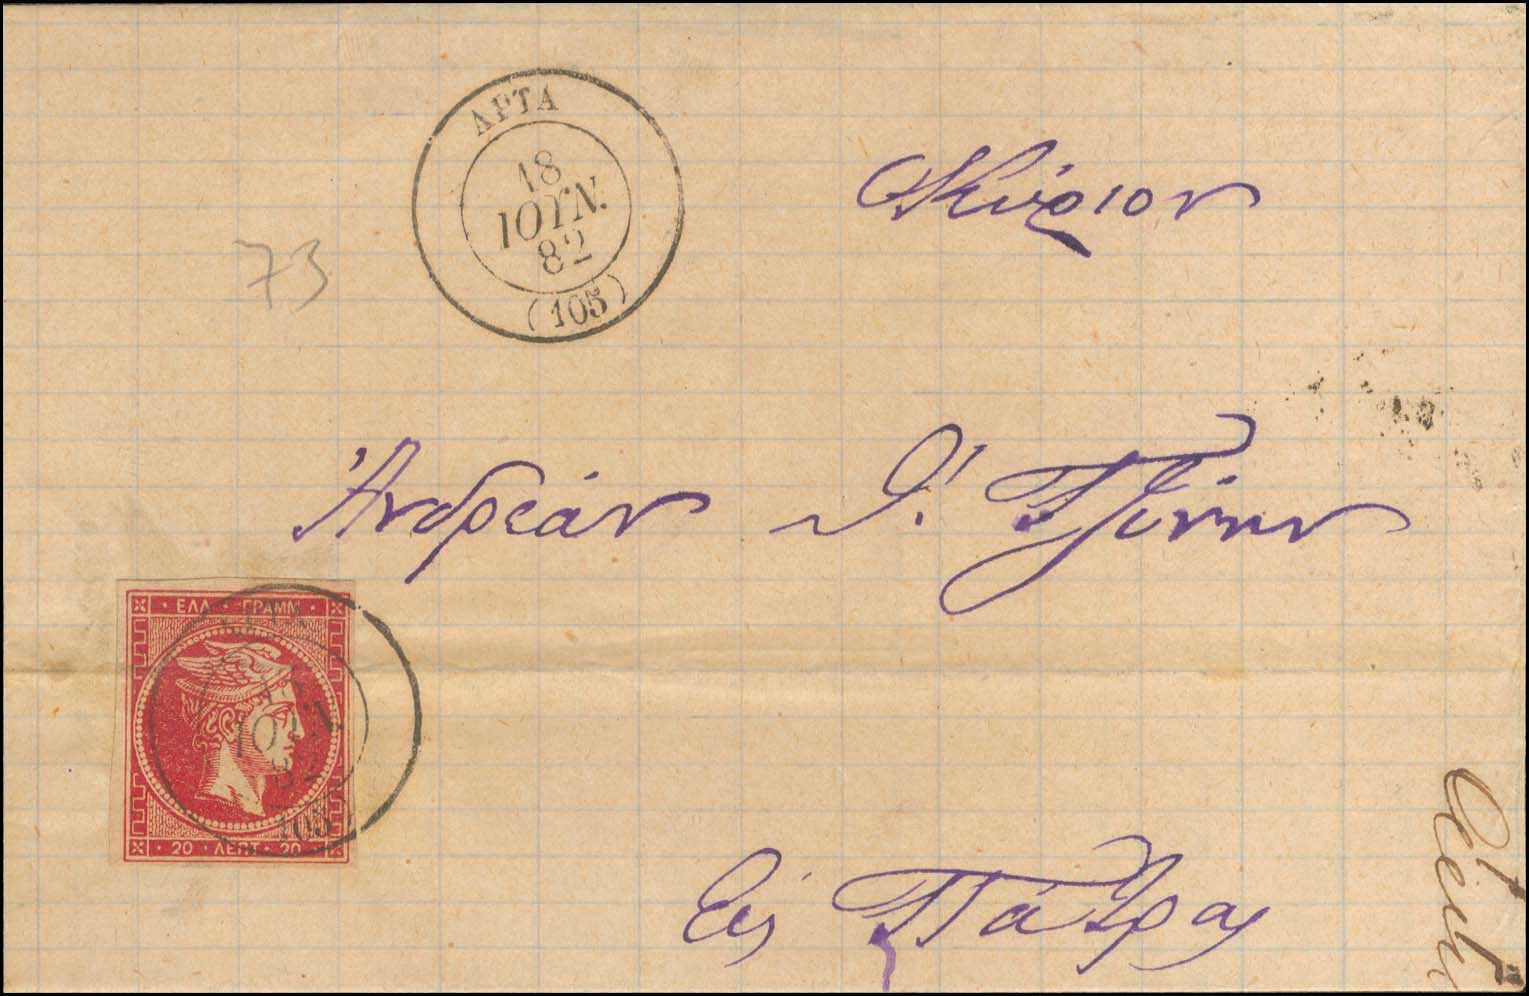 ΑΡΤΑ
18
ΙΟΥΝ.
82
(105)
Κύριον
73
Ἀνδρέαν Θ. Τζίνην
ΕΛΛ · ΓΡΑΜΜ
ΙΟΥΝ.
82
105
20 ΛΕΠΤ 20
Εἰς Πάτρας